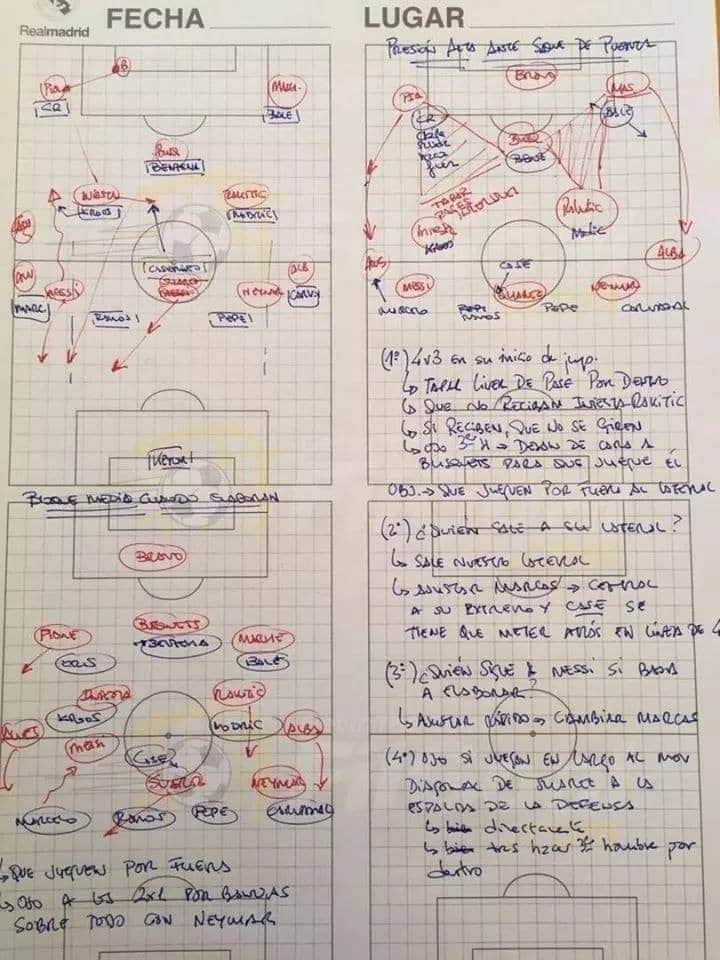 Realmadrid
FECHA
LUGAR
B
CR
BALE
BUSI
BENZEMA
KROOS
RAKITIC
MODRIC
CASEMIRO
MESSI
NEYMAR
ALB
MARC
CARVJ
RAMOS
PEPE
KEYLOR
BLOQUE MEDIO CUANDO ELABORAN
BRAVO
PIQUE
BUSQUETS
BENZEMA
CRIS
BALE
INIESTA
RAKITIC
KROOS
MODRIC
ALVES
ALBA
MESSI
CASE
SUAREZ
NEYMAR
MARCELO
RAMOS
PEPE
CARVAJAL
↳ QUE JUEGUEN POR FUERA
↳ OJO A LOS 2x1 POR BANDAS
SOBRE TODO CON NEYMAR
PRESIÓN ALTA ANTE SAQUE DE PUERTA
BRAVO
MAS
CR
BALE
BUSI
BENZE
TAPAR
PASES
INTERIORES
INIESTA
KROOS
Rakitic
CASE
ALBA
MESSI
SUAREZ
NEYMAR
MARCELO
RAMOS
PEPE
CARVAJAL
(1º) 4v3 en su inicio de juego.
↳ TAPAR LINEA DE PASE POR DENTRO
↳ QUE NO RECIBAN INIESTA-RAKITIC
↳ SI RECIBEN, QUE NO SE GIREN
↳ OJO 3er H → DEJAN DE CARA A
BUSQUETS PARA QUE JUEGUE ÉL
OBJ. → QUE JUEGUEN POR FUERA AL LATERAL
(2º) ¿QUIÉN SALE A SU LATERAL?
↳ SALE NUESTRO LATERAL
↳ AJUSTAR MARCAS → CENTRAL
A SU EXTREMO Y CASE SE
TIENE QUE METER ATRÁS EN LÍNEA DE 4
(3º) ¿QUIÉN SIGUE A MESSI SI BAJA
A ELABORAR?
↳ AJUSTAR RÁPIDO → CAMBIAR MARCAS
(4º) OJO SI JUEGAN EN LARGO AL MOV
DIAGONAL DE SUAREZ A LA
ESPALDA DE LA DEFENSA
↳ bien directamente
↳ bien tras hzar 3er hombre por
dentro